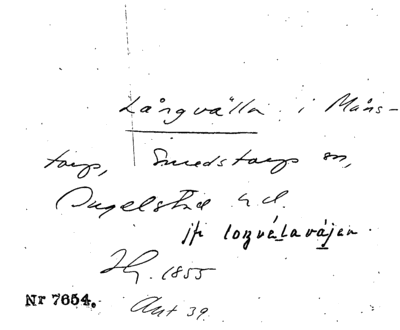 Långvälla i Måns-
torp, Smedstorps sn,
Ingelstad h d.
jfr lozvélavájen.
Hg. 1855
Nr 7654. Ant 39.